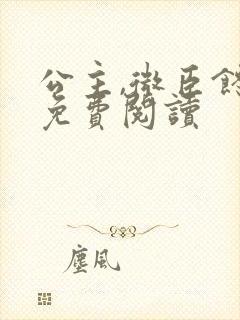 公主,微臣
免費閱讀
塵風